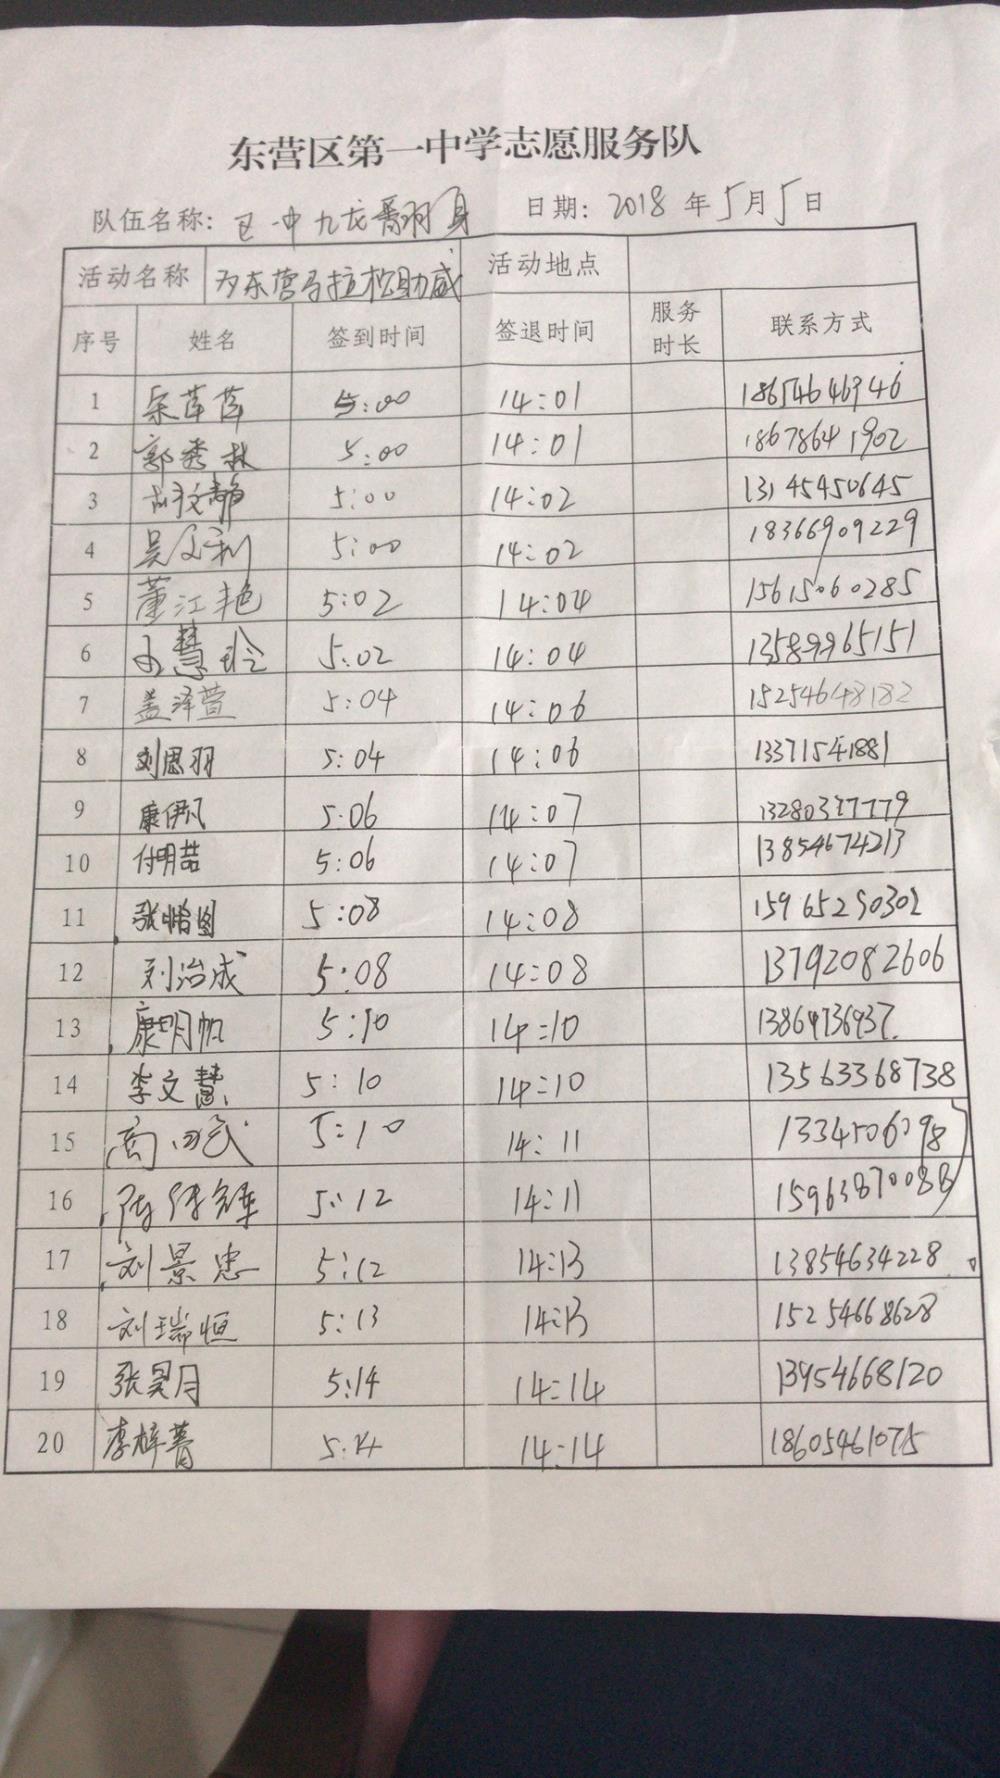 东营区第一中学志愿服务队
队伍名称: 一中九龙翻身 日期: 2018年5月5日
活动名称 为东营马拉松助威 活动地点
序号 姓名 签到时间 签退时间 服务时长 联系方式
1 5:00 14:01 18654646946
2 郭秀林 5:00 14:01 18678641902
3 胡文静 5:00 14:02 13145450645
4 吴文利 5:00 14:02 18366909229
5 董江艳 5:02 14:04 15615060285
6 慧玲 5:02 14:04 13589965151
7 盖泽萱 5:04 14:06 15254648182
8 刘恩羽 5:04 14:06 13371541881
9 康伊凡 5:06 14:07 13280377779
10 付明喆 5:06 14:07 13854674213
11 张怡图 5:08 14:08 15965250302
12 刘治成 5:08 14:08 13792082606
13 康明帆 5:10 14:10 13864736937
14 李文慧 5:10 14:10 13563368738
15 5:10 14:11
16 5:12 14:11
17 刘景忠 5:12 14:13 13854634228
18 刘瑞恒 5:13 14:13 15254668628
19 张昊月 5:14 14:14 13954668120
20 李梓菁 5:14 14:14 18605461075